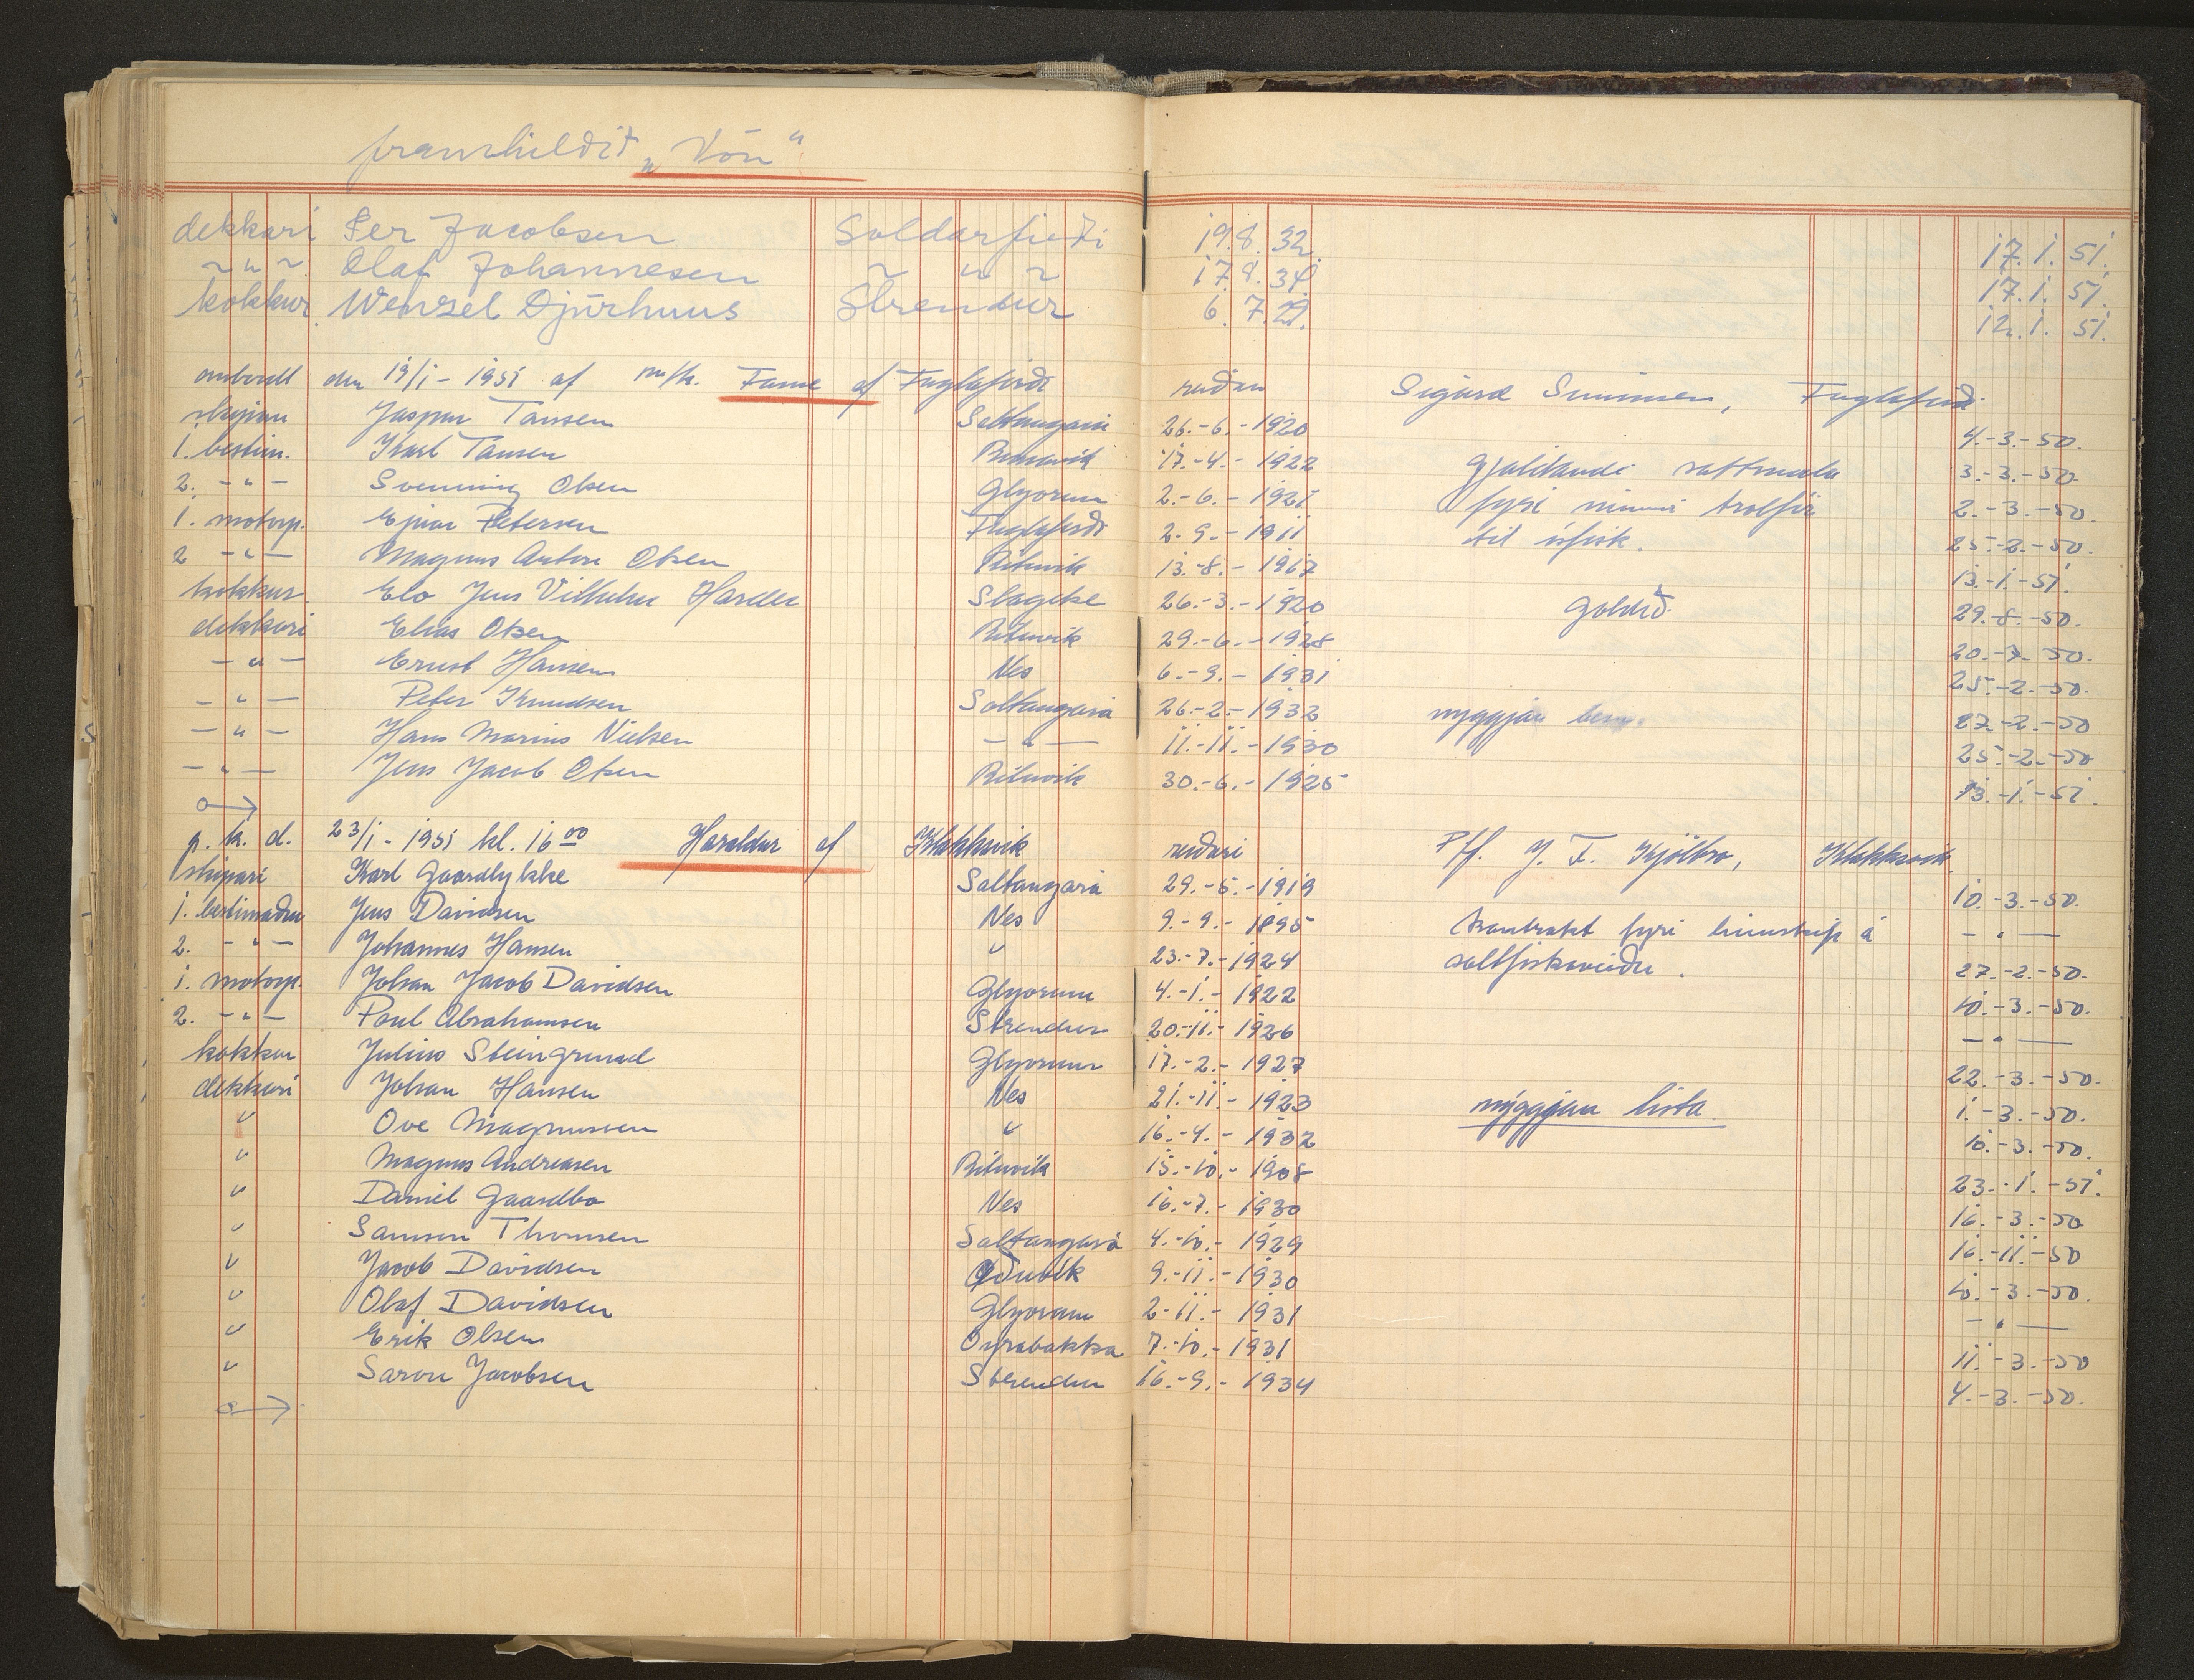 framhildit „Vón“
dekkari Per Jacobsen Soldarfirði 19. 8. 32. 17. 1. 51.
~ " ~ Olaf Johannesen ~ " ~ 17. 8. 34. 17. 1. 51.
kokkur Wenzel Djurhuus Strendur 6. 7. 29. 12. 1. 51.
den 19/1 - 1951 af m/k. Fame af Fuglafirði Sigurd Simonsen, Fuglafirði
Jaspur Tausen Saltangará 26.-6.-1920 4.-3.-50.
1. bestim. Karl Tausen 17.-4.-1922 galdandi sáttmála 3.-3.-50.
2. - " - Svenning Olsen Glyvrum 2.-6.-1921 fyri til 2.-3.-50.
1. motorp. Ejnar Petersen Fuglafirði 2.-9.-1911 til ísfisk. 25.-2.-50.
2 - " - Magnus Anton Olsen Rituvík 13.-8.-1917 13.-1.-51.
kokkur Elo Jens Vilhelm Harder Slagelse 26.-3.-1920 29.-8.-50.
dekkari Elias Olsen Rituvik 29.-6.-1928 20.-7.-50.
- " - Ernst Hansen Nes 6.-9.-1931 25.-2.-50.
- " - Peter Knudsen Saltangará 26.-2.-1932 nyggjan 27.-2.-50
- " - Hans Marius Nielsen - " - 11.-11.-1930 25.-2.-50
- " - Jens Jacob Olsen Rituvik 30.-6.-1925 13.-1.-51.
p. k. d. 23/1 - 1951 kl. 16 00 Haraldur af Klakksvik reiðari P/f. J. F. Kjølbro, Klakksvík.
skipari Karl Gaardlykke Saltangará 29.-5.-1919 10.-3.-50.
1. bestimaður Jens Davidsen Nes 9.-9.-1895 kontrakt fyri línuskip á - " -
2. - " - Johannes Hansen " 23.-7.-1924 saltfiskaveiðu. 27.-2.-50.
1. motorp. Johan Jacob Davidsen Glyvrum 4.-1.-1922 10.-3.-50.
2. - " - Poul Abrahamsen Strendur 20.-11.-1926 - " -
kokkur Julius Steingrund Glyvrum 17.-2.-1927 22.-3.-50.
dekkari Johan Hansen Nes 21.-11.-1923 nýggjan lista 1.-3.-50.
" Ove Magnussen " 16.-4.-1932 10.-3.-50.
" Magnus Andreasen Rituvík 15.-10.-1908 23.-1.-51.
" Daniel Gaardbo Nes 16.-7.-1930 16.-3.-50
" Samson Thomsen Saltangará 4.-10.-1929 16.-11.-50
" Jacob Davidsen 9.-11.-1930 10.-3.-50.
" Olaf Davidsen Glyvrum 2-11.-1931 - " -
" Erik Olsen Oyrabakka 7.-10.-1931 11.-3.-50
" Saron Jacobsen Strendur 16.-9.-1934 4.-3.-50.